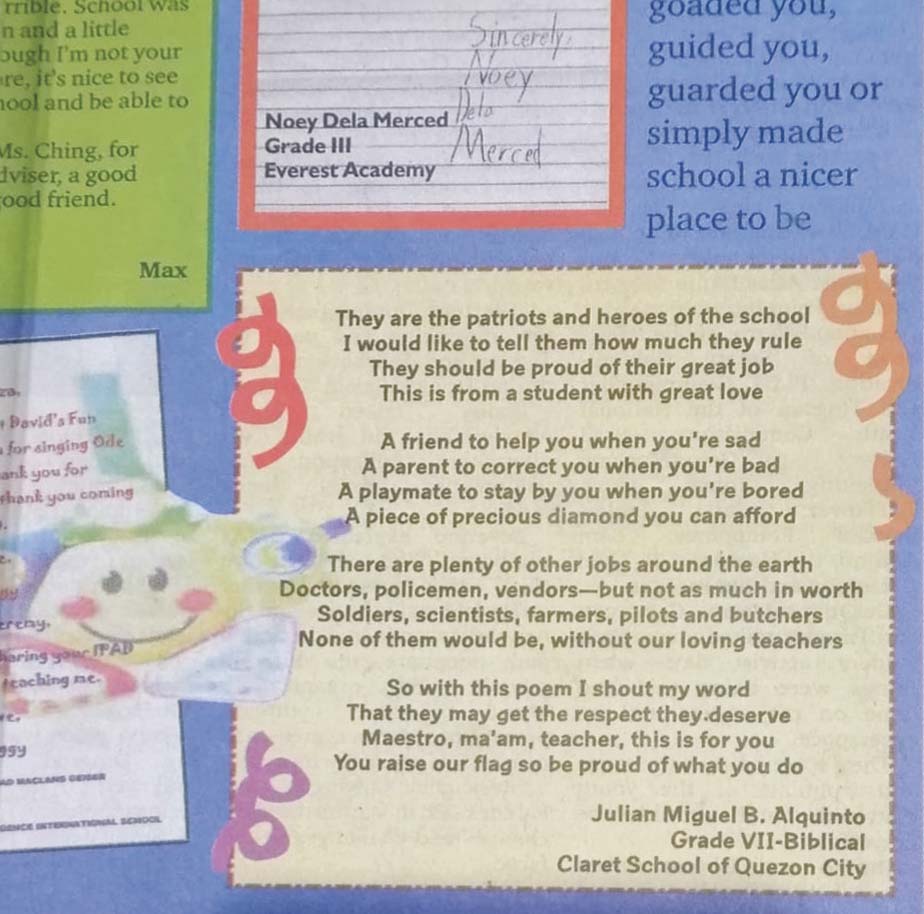 School was
n and a little
I'm not your
it's nice to see
and be able to
Ms. Ching, for
a good
friend.
Max
Sincerely,
Noey
Dela
Merced
Noey Dela Merced
Grade III
Everest Academy
goaded you,
guided you,
guarded you or
simply made
school a nicer
place to be
They are the patriots and heroes of the school
I would like to tell them how much they rule
They should be proud of their great job
This is from a student with great love
A friend to help you when you're sad
A parent to correct you when you're bad
A playmate to stay by you when you're bored
A piece of precious diamond you can afford
There are plenty of other jobs around the earth
Doctors, policemen, vendors—but not as much in worth
Soldiers, scientists, farmers, pilots and butchers
None of them would be, without our loving teachers
So with this poem I shout my word
That they may get the respect they deserve
Maestro, ma'am, teacher, this is for you
You raise our flag so be proud of what you do
Julian Miguel B. Alquinto
Grade VII-Biblical
Claret School of Quezon City
David's Fun
for singing Ode
you for
thank you coming
your IPAD
teaching me.
INTERNATIONAL SCHOOL